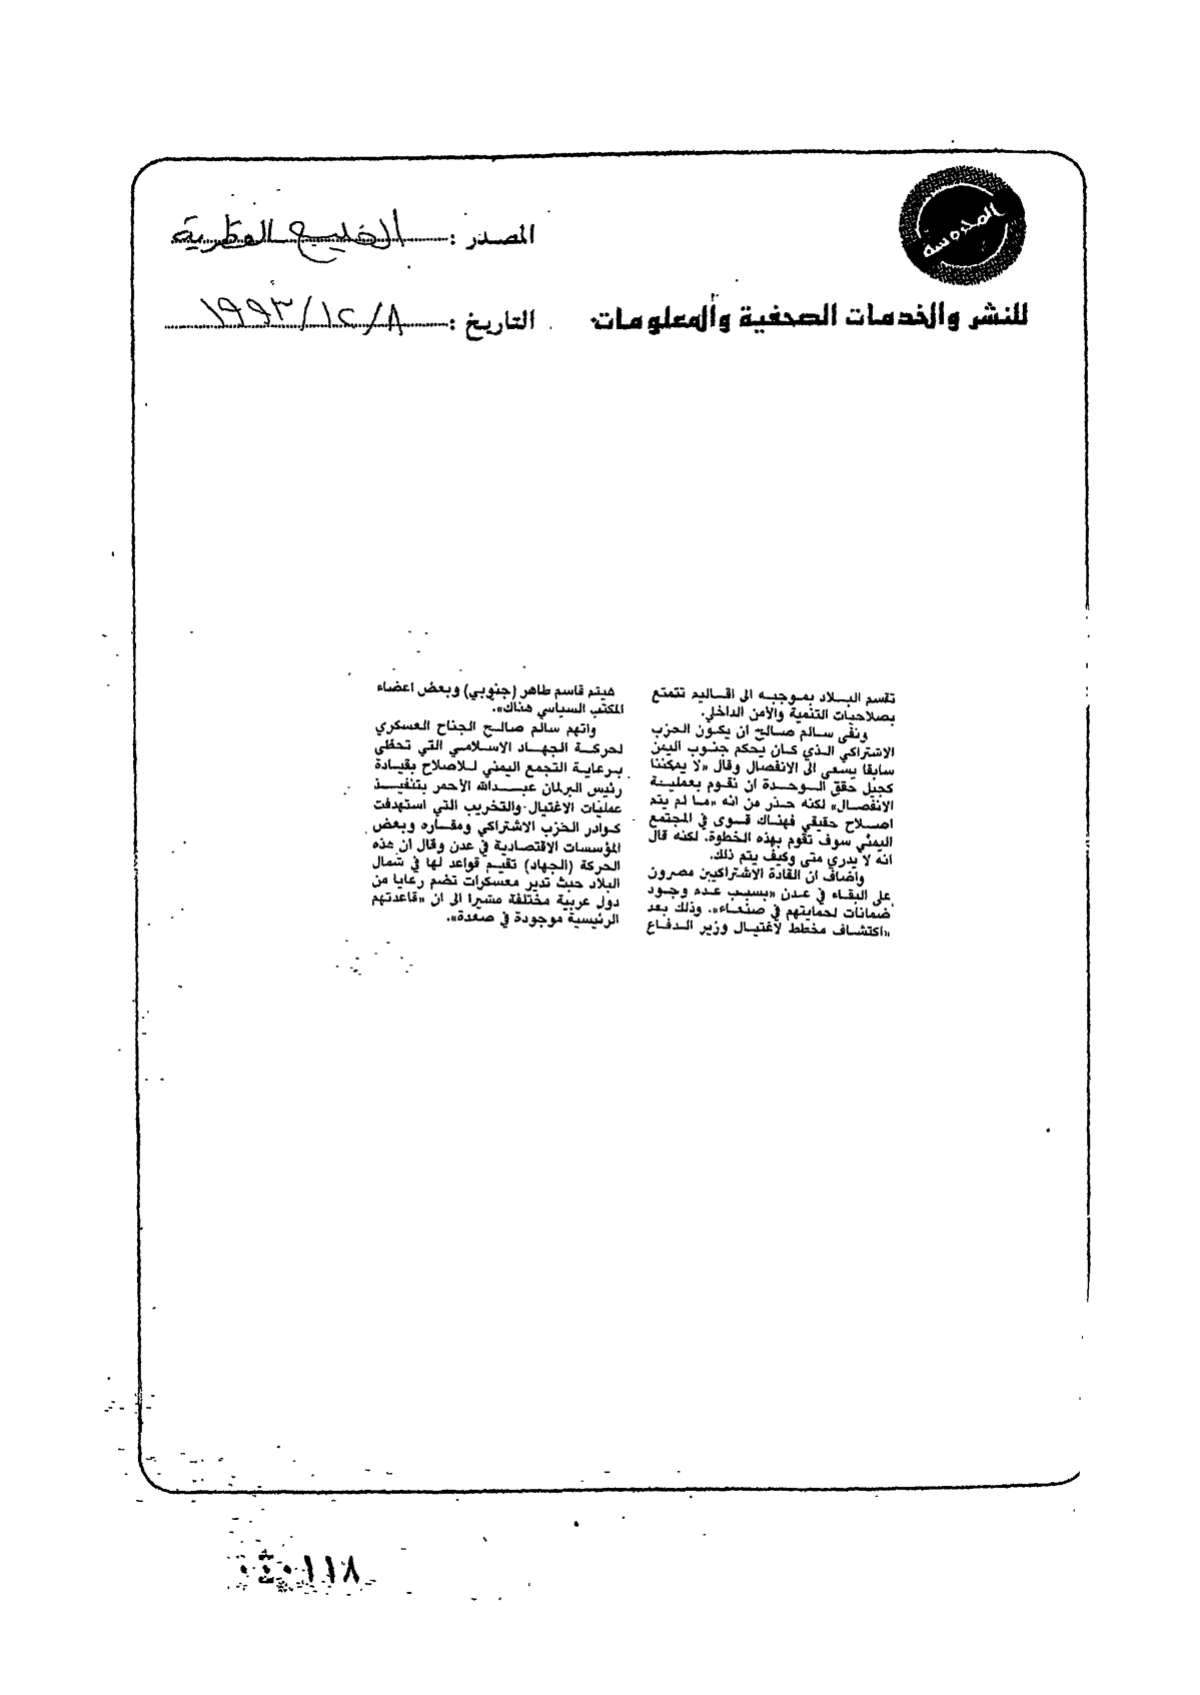 المحروسة
للنشر والخدمات الصحفية والمعلومات
المصدر : الخليج القطرية
التاريخ : ٨/١٢/١٩٩٣
تقسم البلاد بموجبه الى اقاليم تتمتع
بصلاحيات التنمية والأمن الداخلي.
ونفى سالم صالح ان يكون الحزب
الاشتراكي الذي كان يحكم جنوب اليمن
سابقا يسعى الى الانفصال وقال «لا يمكننا
كجيل حقق الوحدة ان نقوم بعملية
الانفصال» لكنه حذر من انه «ما لم يتم
اصلاح حقيقي فهناك قوى في المجتمع
اليمني سوف تقوم بهذه الخطوة. لكنه قال
انه لا يدري متى وكيف يتم ذلك.
واضاف ان القادة الاشتراكيين مصرون
على البقاء في عدن «بسبب عدم وجود
ضمانات لحمايتهم في صنعاء». وذلك بعد
«اكتشاف مخطط لاغتيال وزير الدفاع
هيثم قاسم طاهر (جنوبي) وبعض اعضاء
المكتب السياسي هناك».
واتهم سالم صالح الجناح العسكري
لحركة الجهاد الاسلامي التي تحظى
برعاية التجمع اليمني للاصلاح بقيادة
رئيس البرلمان عبدالله الأحمر بتنفيذ
عمليات الاغتيال والتخريب التي استهدفت
كوادر الحزب الاشتراكي ومقاره وبعض
المؤسسات الاقتصادية في عدن وقال ان هذه
الحركة (الجهاد) تقيم قواعد لها في شمال
البلاد حيث تدير معسكرات تضم رعايا من
دول عربية مختلفة مشيرا الى ان «قاعدتهم
الرئيسية موجودة في صعدة».
٠٤٠١١٨